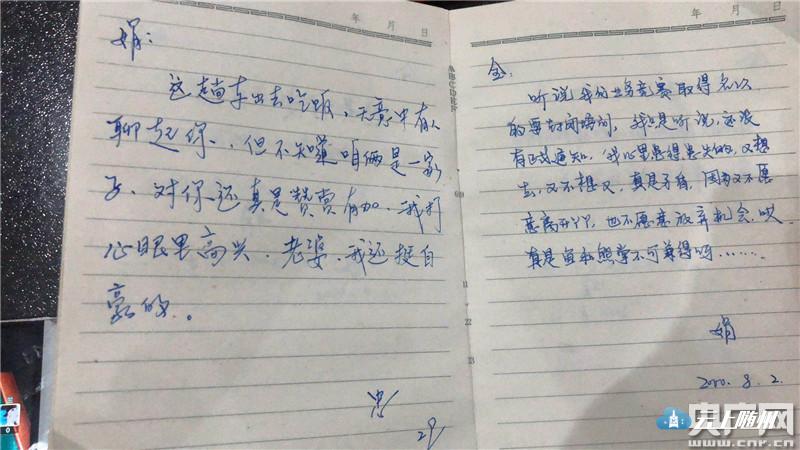 年 月 日
娟：
这趟车出去吃饭，无意中有人
聊起你，但不知道咱俩是一家
子，对你还真是赞赏有加，我打
心眼里高兴，老婆，我还挺自
豪的。
忠
29
年 月 日
ABCDEF
11
22
33
听说我们业务竞赛取得名次
的要封闭培训，我只是听说，还没
有正式通知，我心里患得患失的，又想
去，又不想去，真是矛盾，因为又不愿
意离开个个，也不愿意放弃机会，哎
真是鱼和熊掌不可兼得呀……
娟
2010. 8. 2.
云上随州
央广网
www.cnr.cn